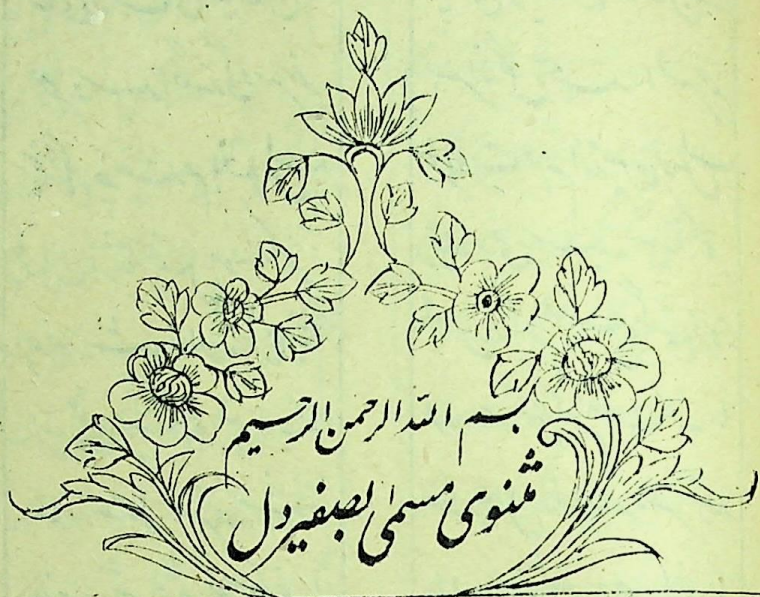 بسم الله الرحمن الرحیم
مثنوی مسمی بصفیر دل